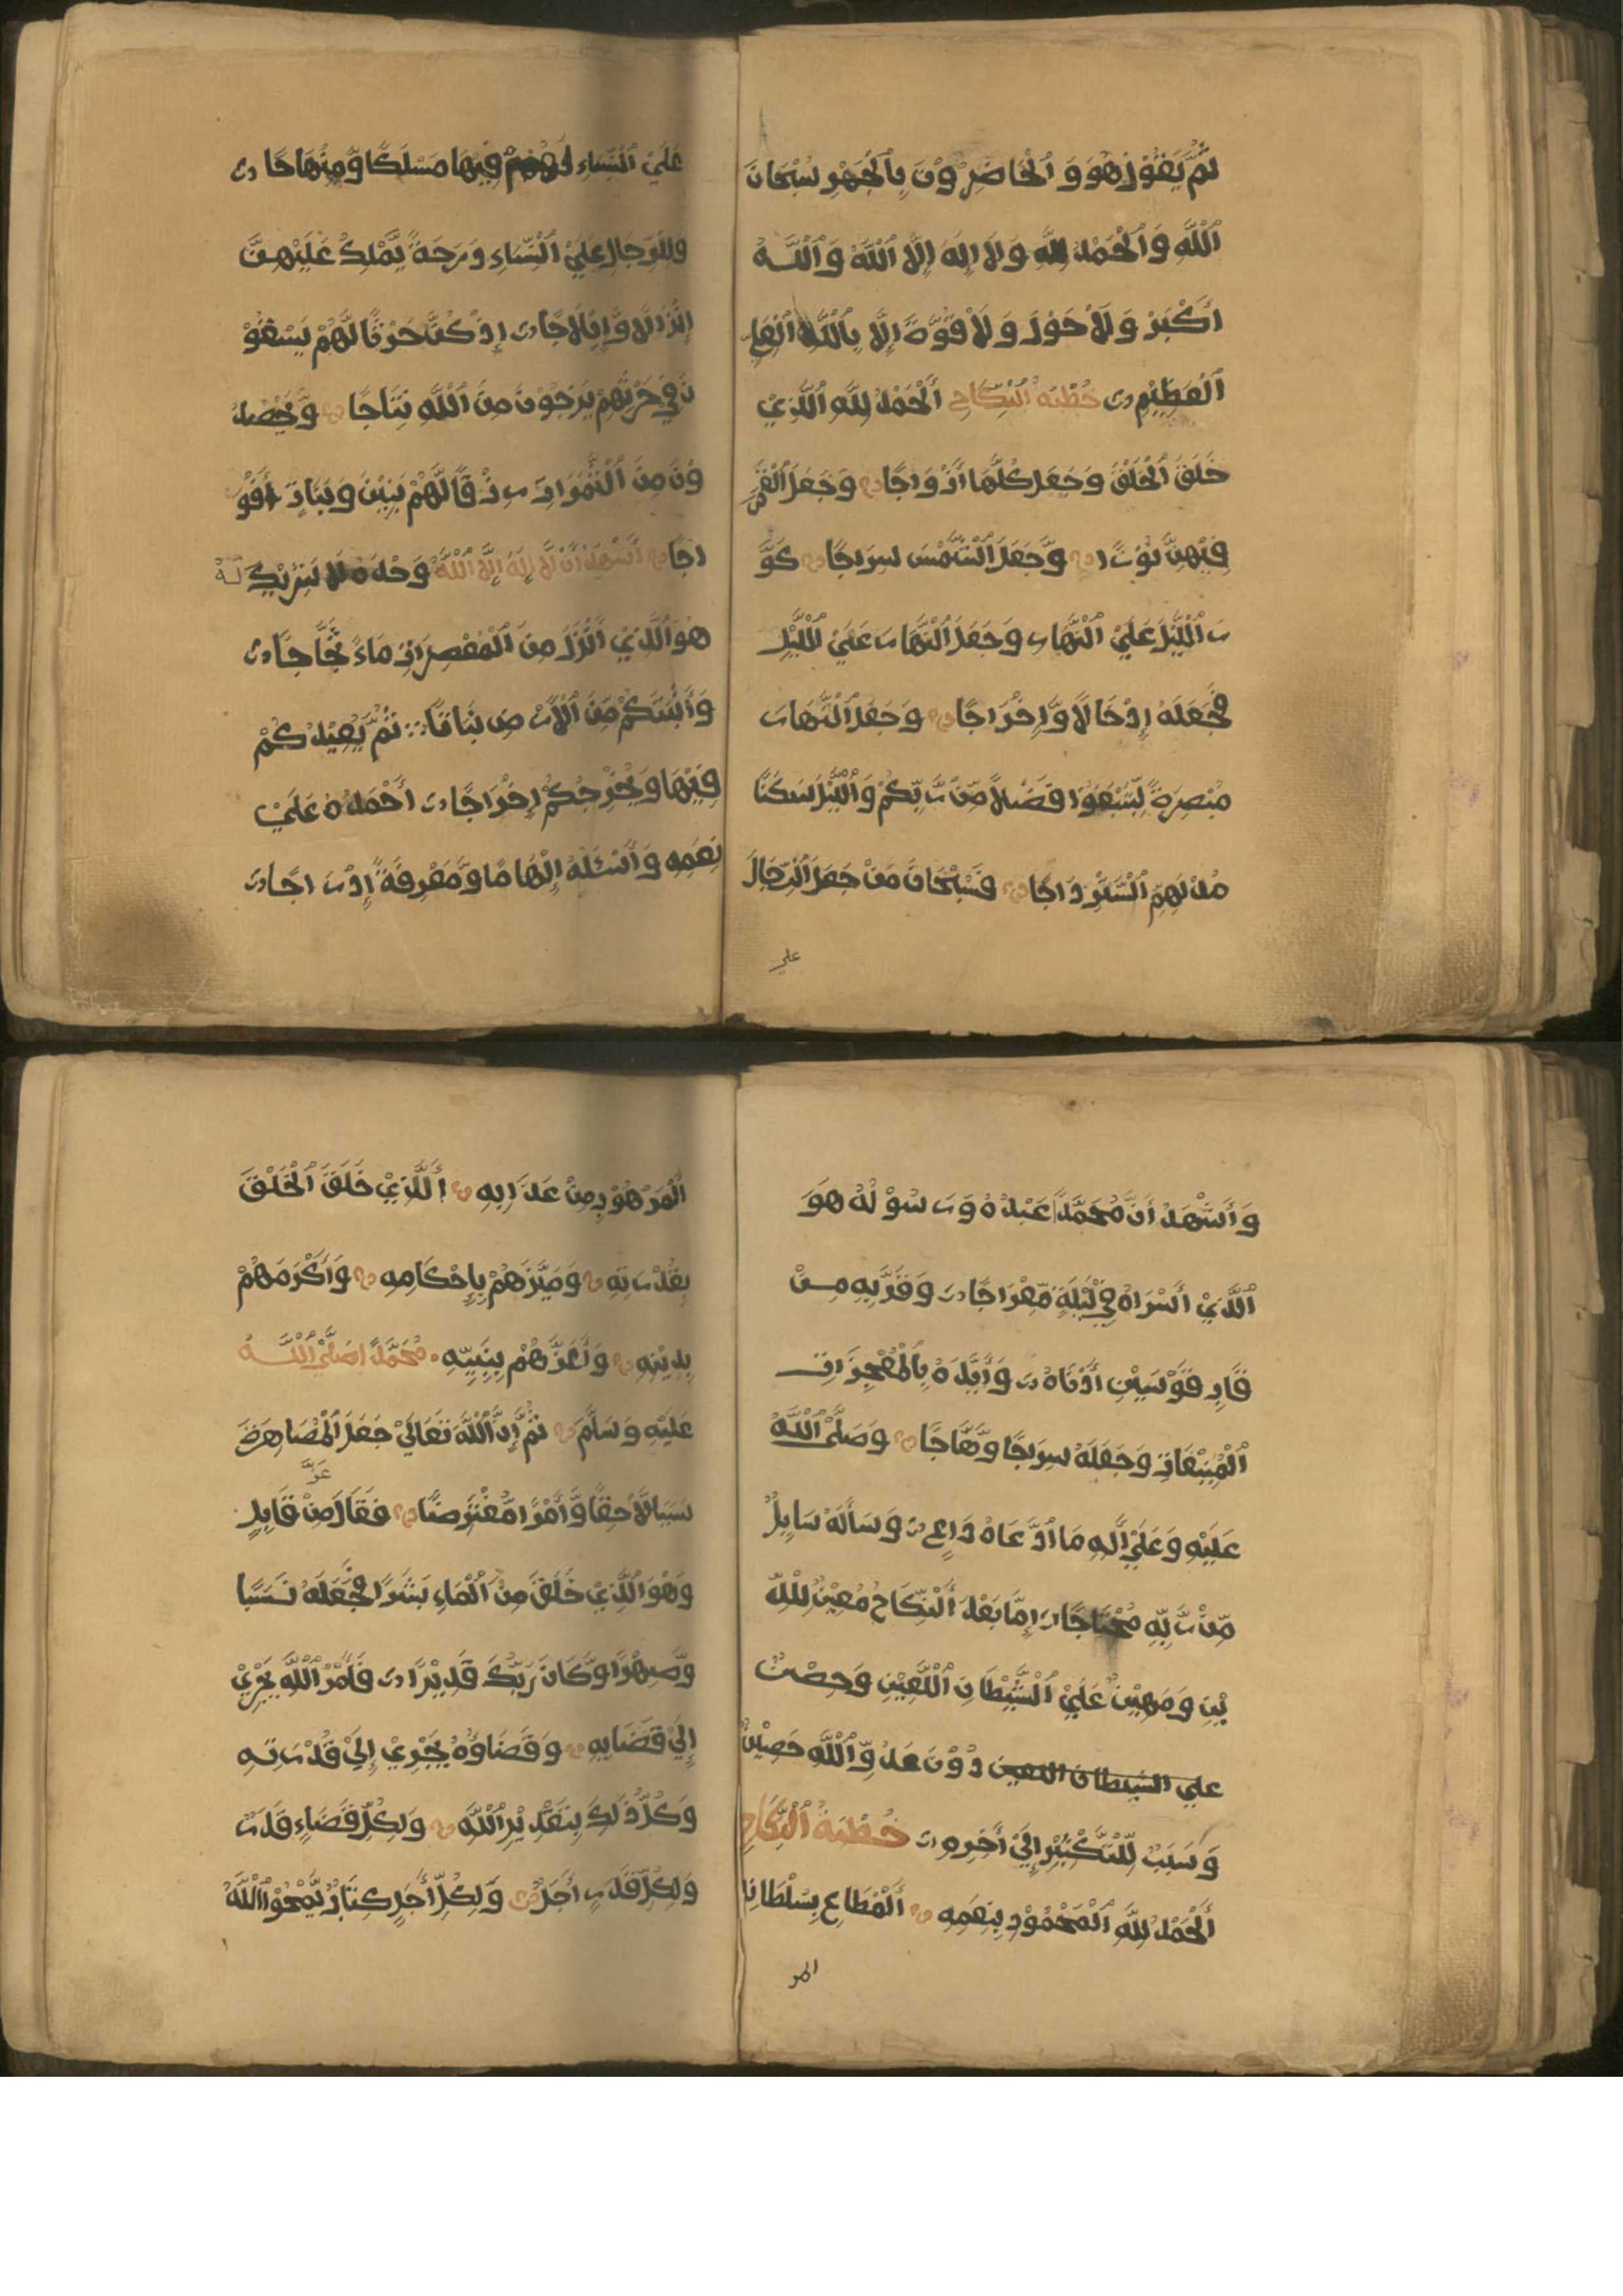 ثُمَّ يَقُوْلُ هُوَ وَ ٱلْحَاضِرُوْنَ بِٱلْجَهْرِ سُبْحَانَ
ٱللَّهِ وَ ٱلْحَمْدُ لِلَّهِ وَ لَا إِلٰهَ إِلَّا ٱللَّهُ وَ ٱللَّهُ
أَكْبَرْ وَ لَا حَوْلَ وَ لَا قُوَّةَ إِلَّا بِٱللَّهِ ٱلْعَلِيِ
ٱلْعَظِيْمِ خُطْبَةُ ٱلنِّكَاحِ أَلْحَمْدُ لِلَّهِ ٱلَّذِيْ
خَلَقَ ٱلْخَلْقَ وَ جَعَلَ كُلَّهَا أَزْوَاجًا وَ جَعَلَ ٱلْقَمَرَ
فِيْهِنَّ نُوْرًا وَّ جَعَلَ ٱلشَّمْسَ سِرَاجًا كَوَّ
رَ ٱللَّيْلَ عَلَيْ ٱلنَّهَارِ وَ جَعَلَ ٱلنَّهَارَ عَلَيْ ٱللَّيْلِ
فَجَعَلَهُ إِدْخَالًا وَّ إِخْرَاجًا وَ جَعَلَ ٱلنَّهَارَ
مُبْصِرَةً لِّتَبْتَغُوا فَضْلًا مِّنْ رَّبِّكُمْ وَ ٱللَّيْلَ سَكَنًا
فَسُبْحَانَ مَنْ جَعَلَ ٱلرِّجَالَ
علي
عَلَيْ ٱلنِّسَاءِ فِيْهَا مَسْلَكًا وَّ مِنْهَاجًا
وَ لِلرِّجَالِ عَلَيْ ٱلنِّسَاءِ دَرَجَةً يَّمْلِكُ عَلَيْهِنَّ
إِنْزَالًا وَّ إِيْلَاجًا إِذْ كُنَّ حَرْثًا لَّهُمْ يَسْقُوْ
نَ فِيْ حَرْثِهِمْ يَرْجُوْنَ مِنَ ٱللَّهِ نِتَاجًا وَّ يَحْصِدُ
وْنَ مِنَ ٱلثَّمَرَاتِ رِزْقًا لَّهُمْ بَنِيْنَ وَ بَنَاتٍ أَفْوَ
اجًا أَشْهَدُ أَنْ لَّا إِلٰهَ إِلَّا ٱللَّهُ وَحْدَهُ لَا شَرِيْكَ لَهُ
هُوَ ٱلَّذِيْ أَنْزَلَ مِنَ ٱلْمُعْصِرَاتِ مَاءً ثَجَّاجًا
وَ أَنْبَتَكُمْ مِّنَ ٱلْأَرْضِ نَبَاتًا ثُمَّ يُعِيْدُكُمْ
فِيْهَا وَ يُخْرِجُكُمْ إِخْرَاجًا أَحْمَدُهُ عَلَيْ
نِعَمِهِ وَ أَسْئَلُهُ إِلْهَامًا وَّ مَعْرِفَةً إِدْرَاجًا
وَ أَشْهَدُ أَنَّ مُحَمَّدًا عَبْدُهُ وَ رَسُوْلُهُ هُوَ
ٱلَّذِيْ أَسْرَاهُ فِيْ لَيْلَةٍ مِّعْرَاجًا وَ قَرَّبَهِ مِنْ
قَابِ قَوْسَيْنِ أَدْنَاهُ وَ أَيَّدَهُ بِٱلْمُعْجِزَاتِ
وَ جَعَلَهُ سِرَاجًا وَّهَّاجًا وَ صَلَّيْ ٱللَّهُ
عَلَيْهِ وَ عَلَيْ أٰلِهِ مَا ٱدَّعَاهُ دَاعٍ وَ سَأَلَهُ سَايِلٌ
مِّنْ رَّبِّهِ مُحْتَاجًا إِمَّا بَعْدَ أَلنِّكَاحُ مُعِيْنٌ لِلدِّ
يْنِ وَ مُهِيْنٌ عَلَيْ ٱلشَّيْطَانِ ٱللَّعِيْنِ وَ حِصْنٌ
علي الشيطان اللعين دُوْنَ عَدُوِّ ٱللَّهِ حَصِيْنٌ
وَ سَبَبٌ لِّلتَّكْثِيْرِ إِلَيْ أٰخِرِهِ خُطْبَةُ ٱلنِّكَاحِ
أَلْحَمْدُ لِلَّهِ ٱلْمَحْمُوْدِ بِنِعَمِهِ أَلْمُطَاعِ بِسُلْطَانِهِ
المر
ٱلْمَرْهُوْبِ مِنْ عَذَابِهِ أَلَّذِيْ خَلَقَ ٱلْخَلْقَ
بِقُدْرَتِهِ وَ مَيَّزَهُمْ بِإِحْكَامِهِ وَ أَكْرَمَهُمْ
بِدِيْنِهِ وَ أَعَزَّهُمْ بِنَبِيِّهِ مُحَمَّدٍ صَلَّيْ ٱللَّهُ
عَلَيْهِ وَ سَلَّمَ ثُمَّ إِنَّ ٱللَّهَ تَعَالَيْ جَعَلَ ٱلْمُصَاهَرَةَ
سَبَبًا لَّاحِقًا وَّ أَمْرًا مُّفْتَرَضًا فَقَالَ عَزَّ مِنْ قَايِلٍ
وَ هُوَ ٱلَّذِيْ خَلَقَ مِنَ ٱلْمَاءِ بَشَرًا فَجَعَلَهُ نَسَبًا
وَّ صِهْرًا وَّ كَانَ رَبُّكَ قَدِيْرًا فَأَمْرُ ٱللَّهِ يَجْرِيْ
إِلَيْ قَضَايِهِ وَ قَضَاؤُهُ يَجْرِيْ إِلَيْ قُدْرَتِهِ
وَ كُلُّ ذٰلِكَ بِتَقْدِيْرِ ٱللَّهِ وَ لِكُلِّ قَضَاءٍ قَدَرٌ
وَ لِكُلِّ قَدَرٍ أَجَلٌ وَ لِكُلِّ أَجَلٍ كِتَابٌ يَّمْحُوا ٱللَّهُ